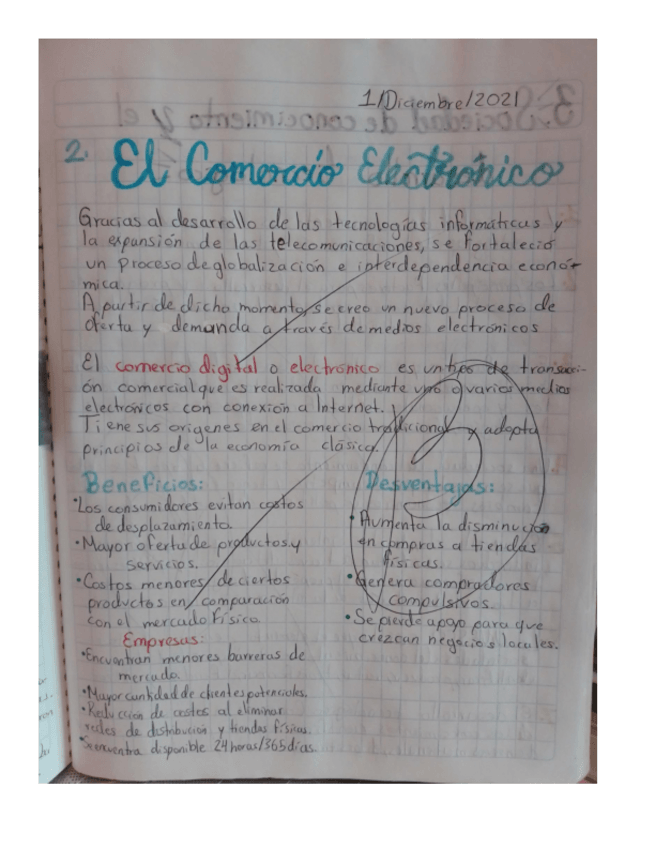 1/Diciembre/2021
2. El Comercio Electrónico
Gracias al desarrollo de las tecnologías informáticas y
la expansión de las telecomunicaciones, se fortaleció
un proceso de globalización e interdependencia econó-
mica.
A partir de dicho momento, se creo un nuevo proceso de
oferta y demanda a través de medios electrónicos
El comercio digital o electrónico es un tipo de transacci-
ón comercial que es realizada mediante uno o varios medios
electrónicos con conexión a Internet.
Tiene sus orígenes en el comercio tradicional y adopta
principios de la economía clásica.
Beneficios:
•Los consumidores evitan costos
de desplazamiento.
•Mayor oferta de productos y
servicios.
•Costos menores de ciertos
productos en comparación
con el mercado físico
Empresas:
•Encuentran menores barreras de
mercado.
•Mayor cantidad de clientes potenciales.
•Reducción de costos al eliminar
redes de distribución y tiendas físicas.
•Se encuentra disponible 24 horas/365 días.
Desventajas:
•Aumenta la disminución
en compras a tiendas
físicas.
•Genera compradores
compulsivos.
•Se pierde apoyo para que
crezcan negocios locales.